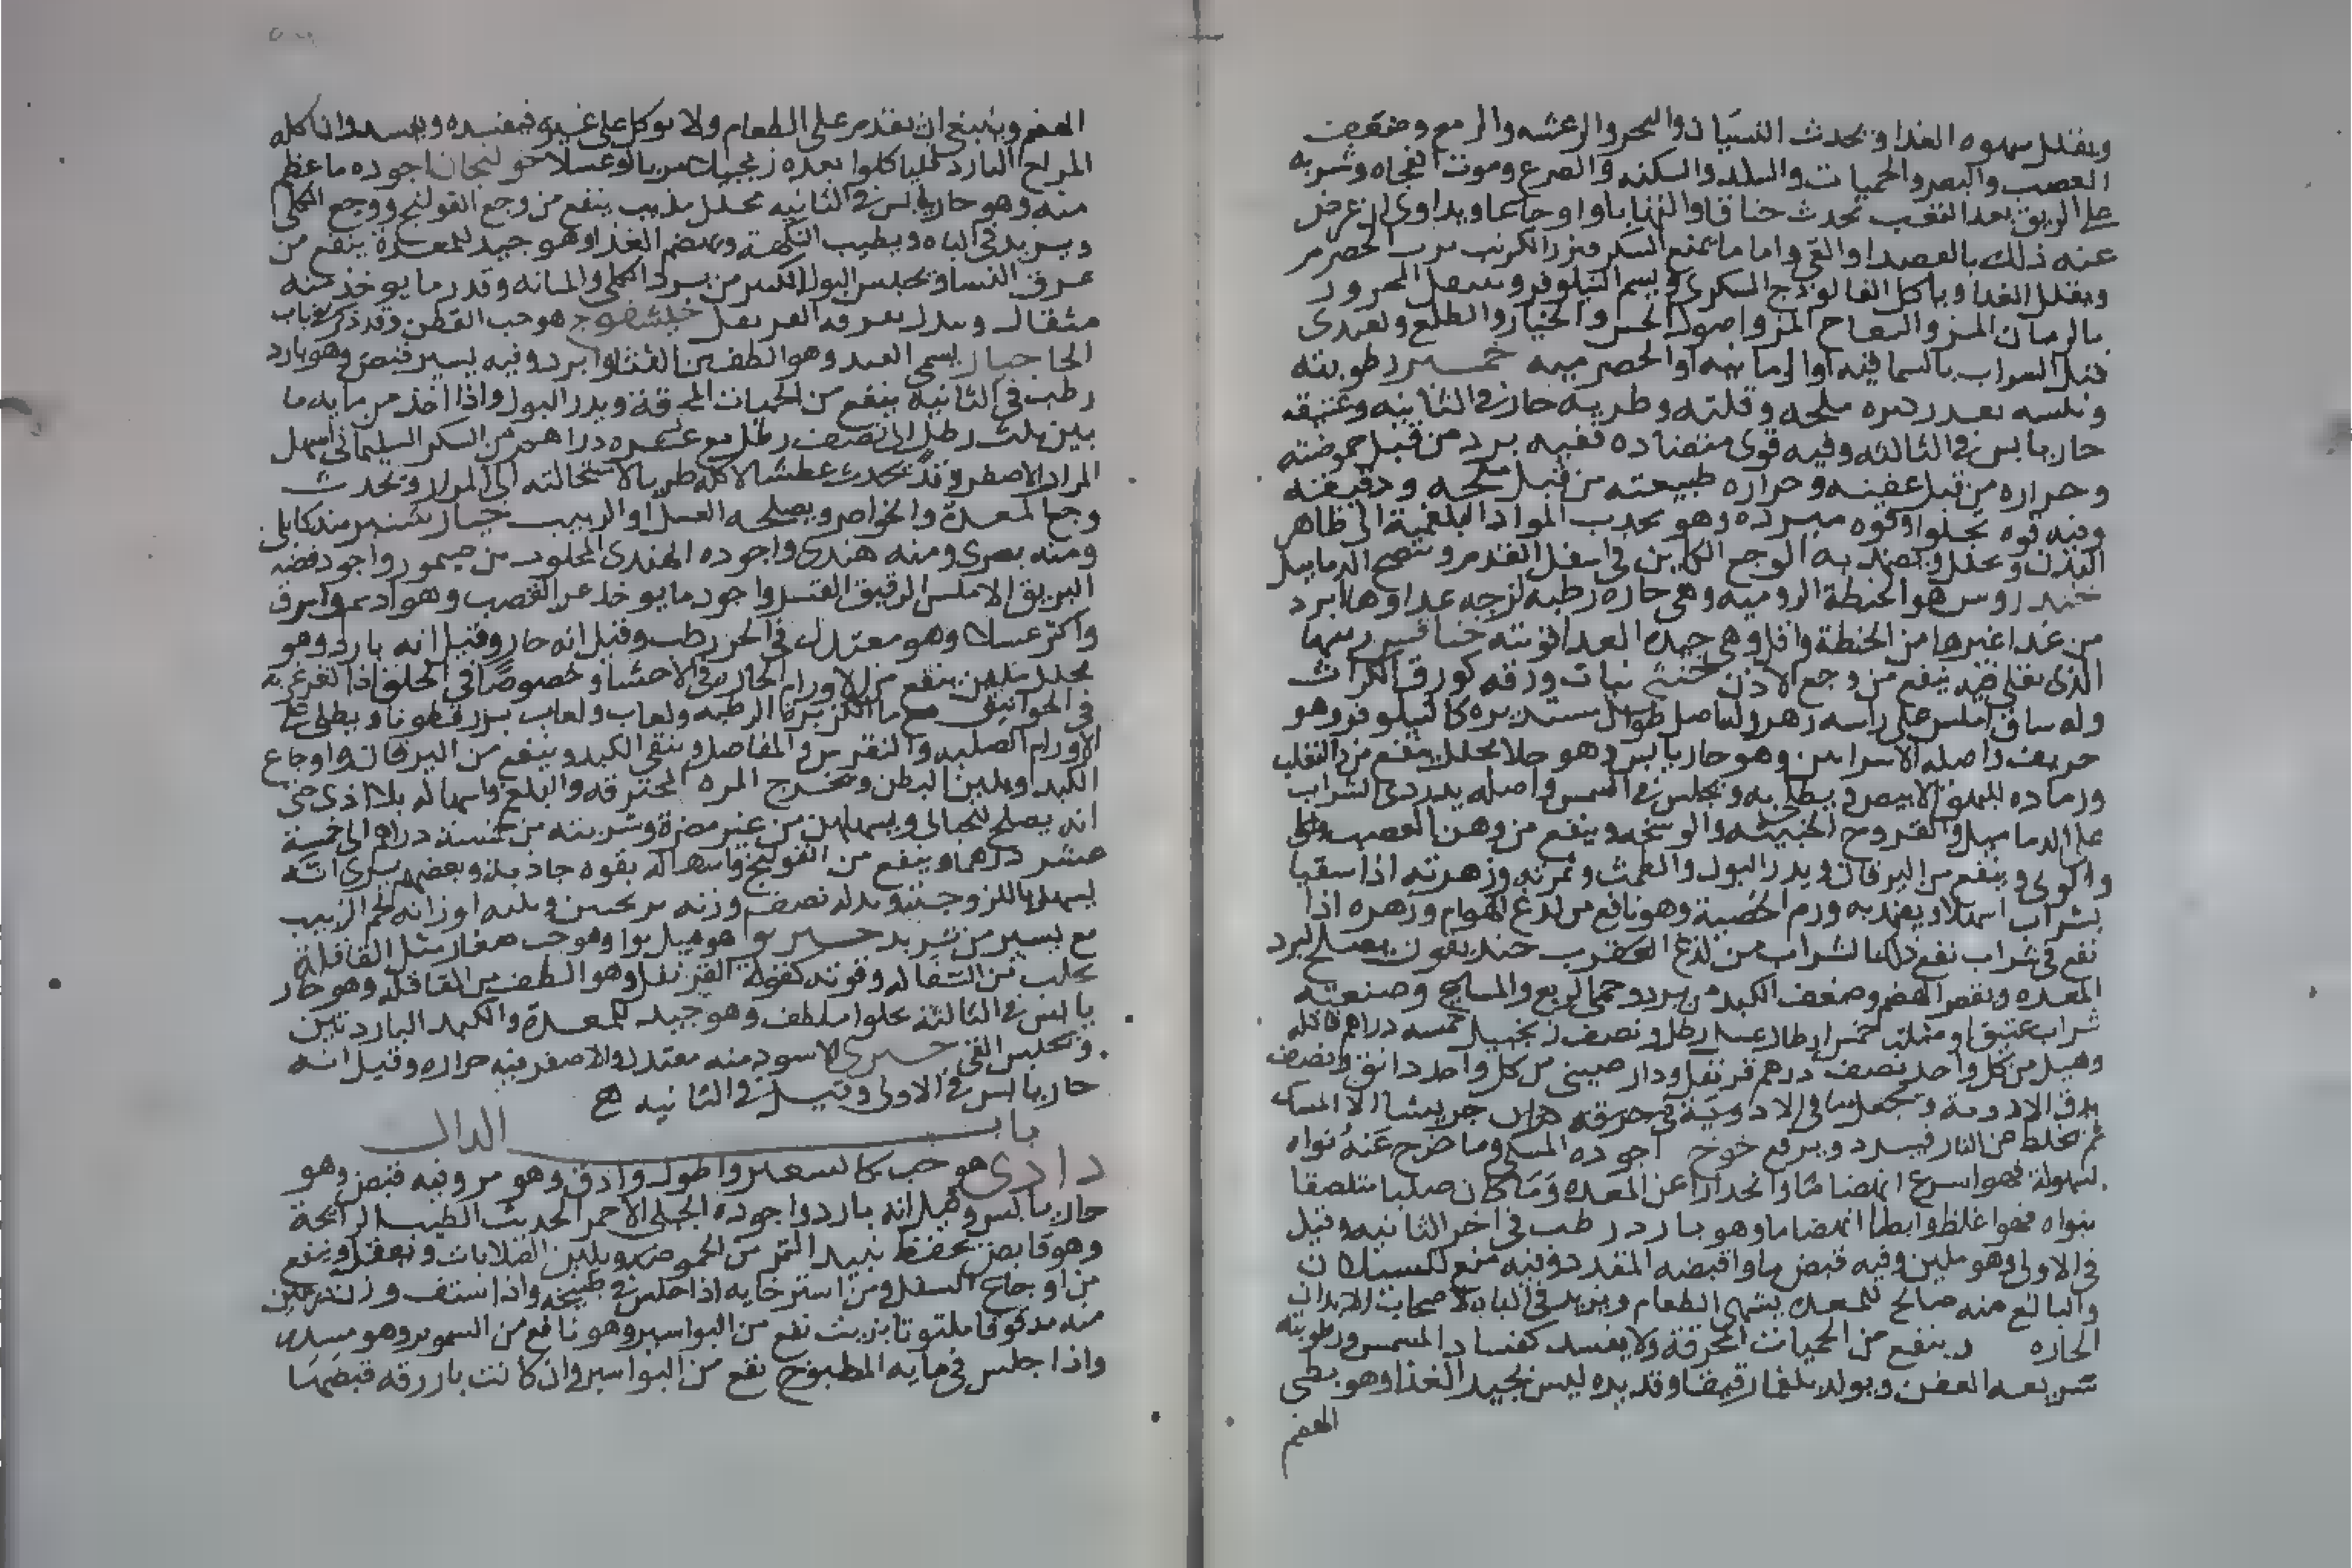 ويقلل شهوه الغذا ويحدث النسيان والبخر والرعشه والدمع وضعف
العصب والبصر والحميات والسدد والسكته والصرع وموت الفجاه وشربه
على الريق بعد التعب يحدث خناقا والتهابا واوجاعا ويداوى ان عرض
عنه ذلك بالفصد او القى واما ما يمنع السكر فبزر الكرنب شرب الحصرم
ويقلل الغذا وياكل الفالوذج السكرى ويشم النيلوفر ويتنقل المحرور
بالرمان المز والتفاح المز واصول الخس والخيار والطلع ويغتدى
قبل الشراب بالسماقيه او الرمانيه او الحصرميه خمير رطوبته
ويبسه بقدر كثره ملحه وقلته وطريه حار فى الثانيه وعتيقه
حار يابس فى الثالثه وفيه قوى متضاده ففيه برد من قبل حموضته
وحراره من قبل عفنه وحراره طبيعته من قبل ملحه ودقيقه
وفيه قوه تجلوا وقوه مبرده وهو يجدب المواد البلغمية الى ظاهر
البدن ويحلل ويضمد به الوجع الكاين فى اسفل القدم وينضج الدماميل
خندروس هو الحنطة الروميه وهى حاره رطبه لزجه غداوها ابرد
من غدا غيرها من الحنطة واقل وهى جيده الغدا لزوجته خنافس زيتها
الذى تغلى فيه ينفع من وجع الاذن خنثى نبات ورقه كورق الكراث
وله ساق املس على راسه زهر وله اصل طوال مستديره كالبلوط وهو
حريف واصله الاسراس وهو حار يابس وهو جلا محلل ينفع من الثعلب
ورماده للبهق الابيض يطلى به ويجلس فى الشمس واصله بدردى الشراب
على الدماميل والقروح الخبيثه والوسخه وينفع من وهن العصب
وينفع من اليرقان ويدر البول والطمث وثمرته وزهرته اذا سقيا
بشراب اسهلا ويضمد به ورم الخصية وهو نافع من لدغ الهوام وزهره اذا
نقع فى شراب نفع ذلك الشراب من لدغ العقرب خنديقون يصلح لبرد
المعده ونقص الهضم وضعف الكبد من برد وحمى الربع والمشايخ وصنعته
شراب عتيق خمس ارطال عسل رطل ونصف زنجبيل خمسه دراهم قاقله
وهيل من كل واحد نصف درهم قرنفل ودار صينى من كل واحد دانق ونصف
يدق الادويه جريشا الا المسك
ثم يخلط عن النار فيبرد ويرفع خوخ اجوده المسكى وما خرج عنه نواه
بسهولة فهو اسرع انهضاما وانحدارا عن المعده وما كان صلبا متلصقا
بنواه فهو اغلظ وابطا انهضاما وهو بارد رطب فى اخر الثانيه وقيل
فى الاولى وهو ملين وفيه قبض ما واقبضه المقدد وفيه منع للسيلان
والبالغ منه صالح للمعده يشهى الطعام ويزيد فى الباه لاصحاب الابدان
الحاره وينفع من الحميات المحرقة ولا يفسد كفساد المشمش ورطوبته
سريعه العفن ويولد بلغما رقيقا وقديده ليس بجيد الغذا وهو بطى
الهضم
الهضم وينبغى ان يقدم على الطعام ولا يوكل على غيره فيفسده ويفسد وان اكله
المزاج البارد فلياكلوا بعده زنجبيلا مربا او عسلا خولنجان اجوده ما عظم
منه وهو حار يابس فى الثانيه محلل مذيب ينفع من وجع القولنج ووجع الكلى
ويزيد فى الباه ويطيب النكهة ويهضم الغذا وهو جيد للمعدة ينفع من
عرق النسا ويحبس البول الكثير من برد الكلى والمثانه وقدر ما يوخذ منه
مثقال وبدل قرنفل خيشفوج هو حب القطن وقد ذكر فى باب
الحا خيار يسمى القند وهو الطف من القثا وابرد وفيه يسير قبض وهو بارد
رطب فى الثانيه ينفع من الحميات المحرقة ويدر البول واذا اخذ من مايه ما
بين ثلث رطل الى نصف رطل مع عشره دراهم من السكر السليمانى اسهل
المرار الاصفر وقد يحدث عطشا لاكله طريا لاستحالته الى المرار ويحدث
وجع المعدة والخواصر ويصلحه العسل او الزبيب خيار شنبر منه كابلى
ومنه بصرى ومنه هندى واجوده الهندى المجلوب من صيمور واجود قصبه
البريق الاملس الرقيق القشر واجود ما يوخذ عن القصب وهو ادسم وابرق
واكثر عسلا وهو معتدل فى الحر رطب وقيل انه حار وقيل انه بارد وهو
محلل ملين ينفع من الاورام الحاره فى الاحشا وخصوصا فى الحلق اذا تغرغر به
فى الخوانيق مع ما الكزبرة الرطبه ولعاب ولعاب بزر قطونا ويطلى على
الاورام الصلبه والنقرس والمفاصل وينقى الكبد وينفع من اليرقان واوجاع
الكبد ويلين البطن ويخرج المره المحترقه والبلغم واسهاله بلا اذى حتى
انه يصلح للحبالى ويسهلهن من غير مضرة وشربته من خمسة دراهم الى خمسة
عشر درهما وينفع من القولنج واسهاله بقوه جاذبه وبعضهم يرى انه
يسهل باللزوجة وبدله نصف وزنه ترنجبين وثلثه اوزانه لحم الزبيب
مع يسير من تربد خير بوا هو هيل بوا وهو حب صغار مثل القاقلة
يجلب من السفاله وقوته كقوة القرنفل وهو الطف من القاقله وهو حار
يابس فى الثالثة يجلوا ملطف وهو جيد للمعدة والكبد الباردتين
ويحبس القى خيرى الاسود منه معتدل والاصفر فيه حراره وقيل انه
حار يابس فى الاولى وقيل فى الثانيه
باب الدال
دادى هو حب كالشعير واطول وادق وهو مر وفيه قبض وهو
حار يابس وقيل انه بارد واجوده الجبلى الاحمر الحديث الطيب الرائحة
وهو قابض يحفظ نبيد التمر من الحموضه ويلين الصلابات ويعقل وينفع
من اوجاع السفل ومن استرخايه اذا جلس فى طبيخه واذا استف وزن درهمين
منه مدقوقا ملتوتا بزيت نفع من البواسير وهو نافع من السموم وهو مسدد
واذا جلس فى مايه المطبوخ نفع من البواسير وان كانت بارزه قبضها